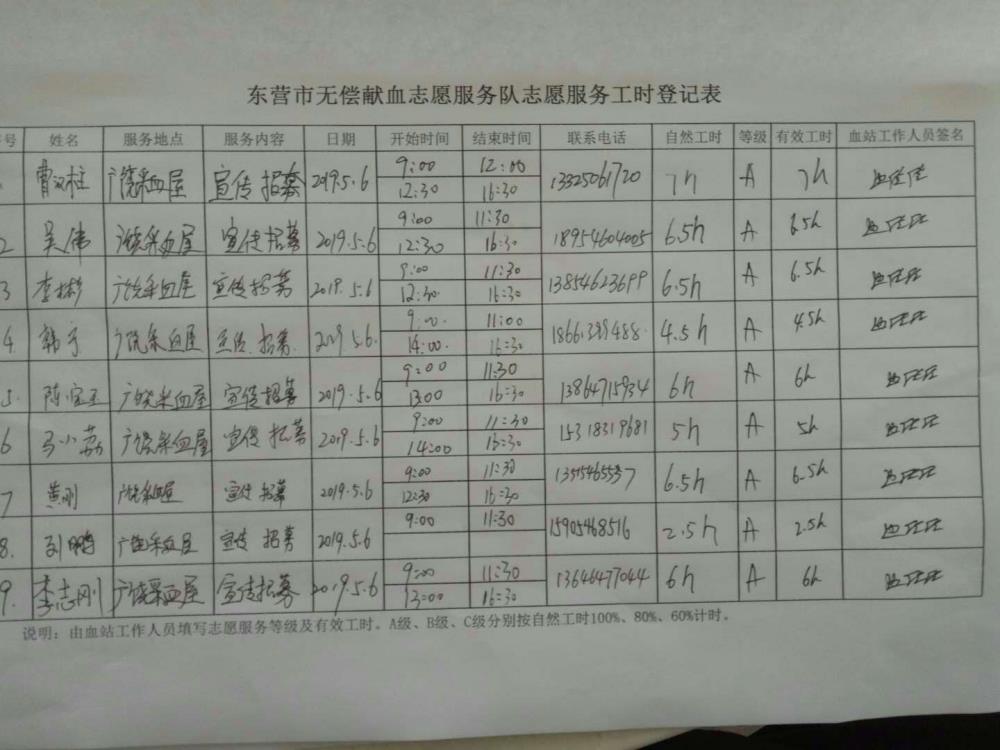 东营市无偿献血志愿服务队志愿服务工时登记表
号 姓名 服务地点 服务内容 日期 开始时间 结束时间 联系电话 自然工时 等级 有效工时 血站工作人员签名
曹汉柱 广饶采血屋 宣传招募 2019.5.6 9:00 12:00 13325061720 7h A 7h
12:30 16:30
2 吴伟 广饶采血屋 宣传招募 2019.5.6 9:00 11:30 18954604005 6.5h A 6.5h
12:30 16:30
3 李彬彬 广饶采血屋 宣传招募 2019.5.6 9:00 11:30 13854623699 6.5h A 6.5h
12:30 16:30
4. 韩宁 广饶采血屋 宣传.招募. 2019.5.6. 9:00. 11:00 4.5h A 4.5h
14:00. 16:30
5. 陈宝玉 广饶采血屋 宣传招募 2019.5.6 9:00 11:30 13864715934 6h A 6h
13:00 16:30
6 马小荔 广饶采血屋 宣传招募 2019.5.6 9:00 11:30 15318319681 5h A 5h
14:00 16:30
7 黄刚 广饶采血屋 宣传招募 2019.5.6 9:00 11:30 6.5h A 6.5h
12:30 16:30
8. 刘鹏 广饶采血屋 宣传招募 2019.5.6 9:00 11:30 15905468516 2.5h A 2.5h
9. 李志刚 广饶采血屋 宣传招募 2019.5.6 9:00 11:30 13646477044 6h A 6h
13:00 16:30
说明：由血站工作人员填写志愿服务等级及有效工时。A级、B级、C级分别按自然工时100%、80%、60%计时。